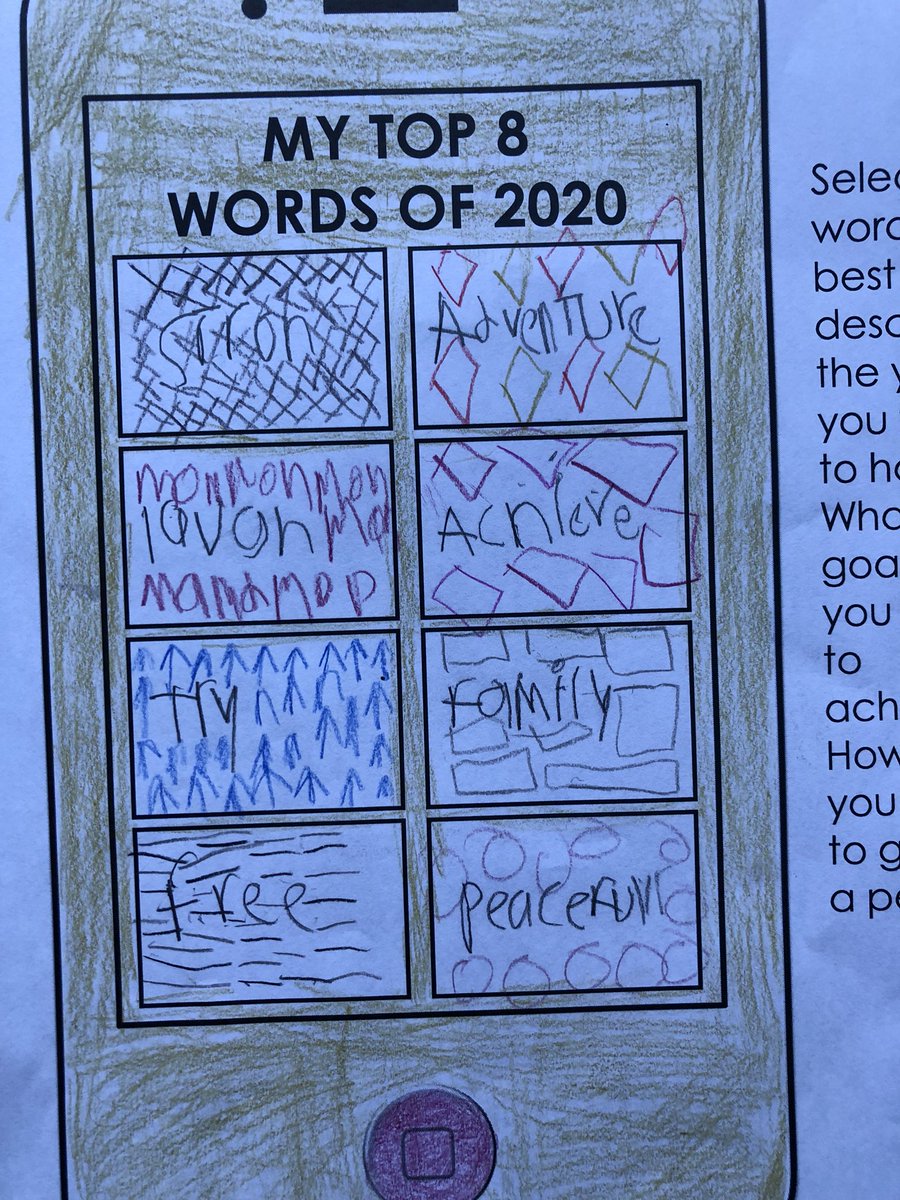 MY TOP 8
WORDS OF 2020
Stron
Adventure
laugh
Achieve
Try
Family
free
peacefull
Selec
word
best
desc
the y
you
to ha
Wha
goa
you
to
ach
How
you
to g
a pe